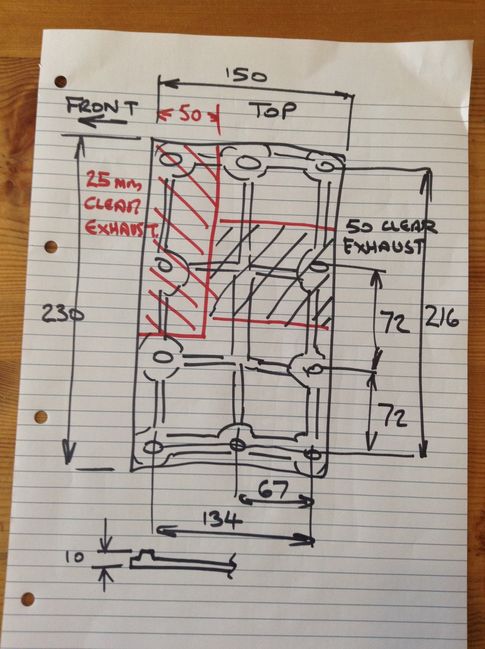 150
FRONT
50
TOP
25mm
CLEAR
EXHAUST.
50 CLEAR
EXHAUST
230
72
216
72
67
134
10